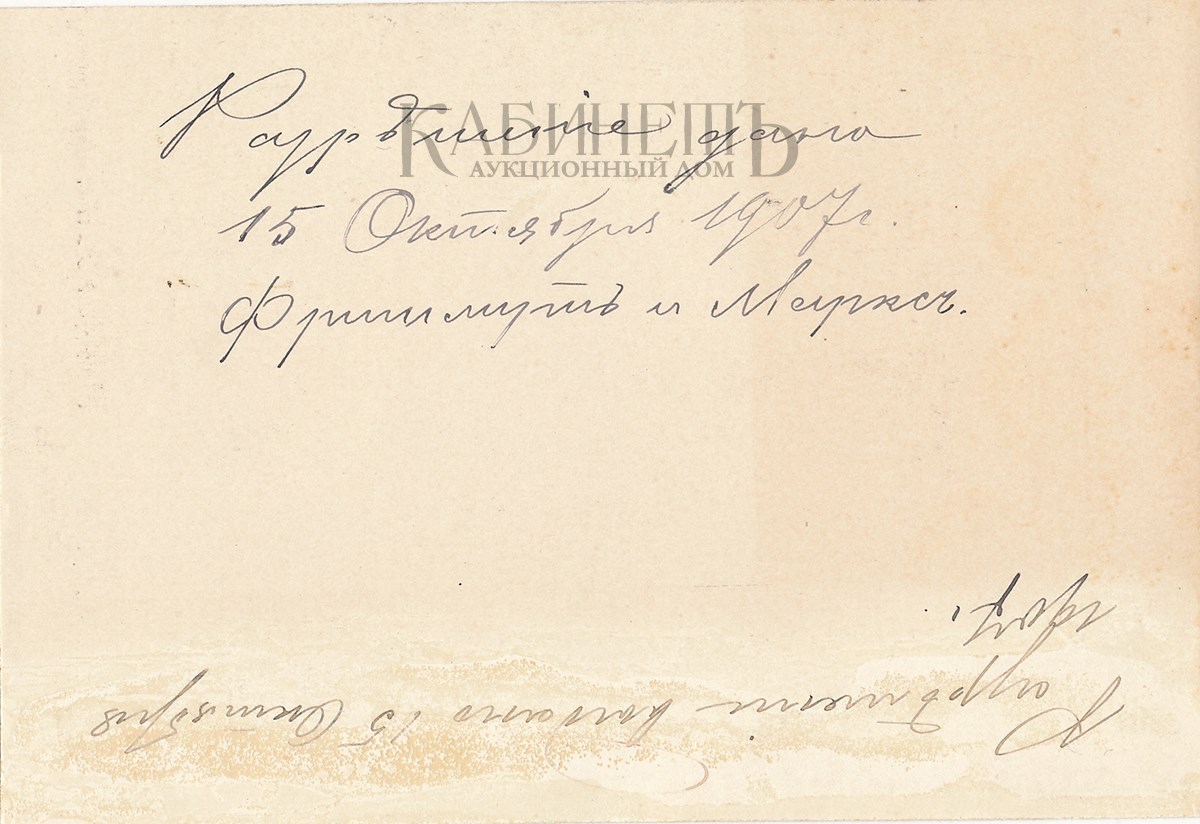 Разрѣшеніе дано
КАБИНЕТЪ
АУКЦИОННЫЙ ДОМ
15 Октября 1907 г.
Фришмутъ и Маркс.
Разрѣшеніе 15 Октября
1907.